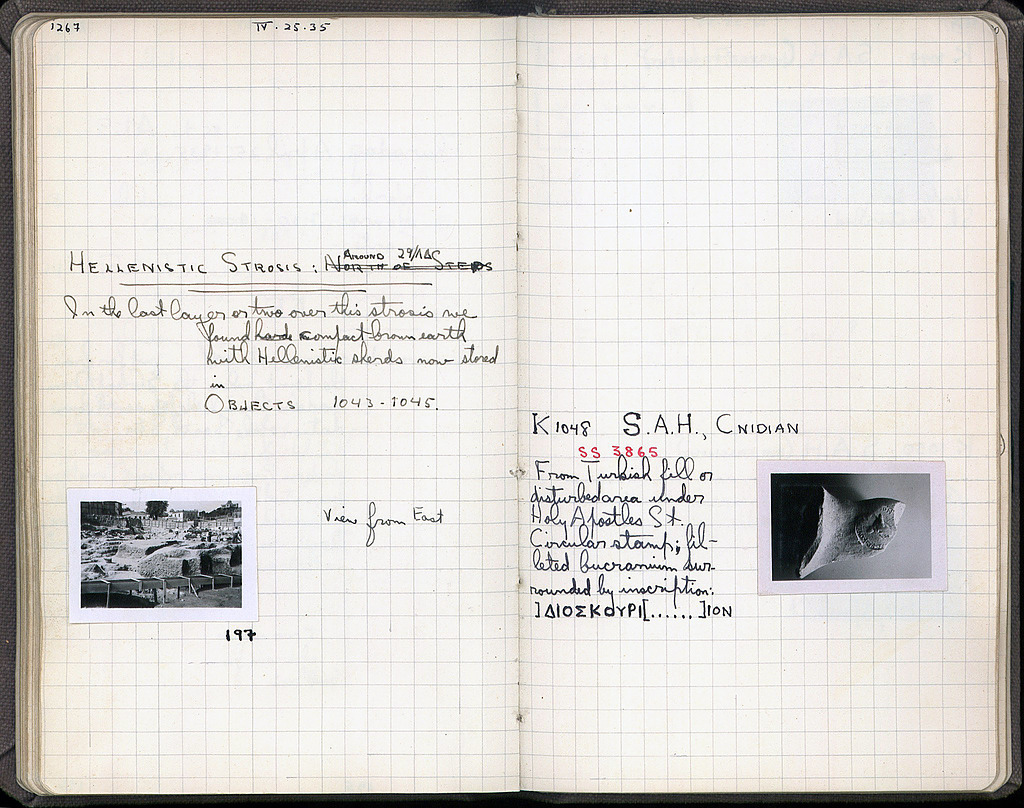 1267
IV . 25.35
HELLENISTIC STROSIS : NORTH OF STEPS
AROUND 29/ΛΔ
In the last layer or two over this strosis we
found hard compact brown earth
with Hellenistic sherds now stored
in
OBJECTS 1043-1045.
View from East
197
K 1048 S.A.H., CNIDIAN
SS 3865
From Turkish fill or
disturbed area under
Holy Apostles St.
Circular stamp; fil-
leted bucranium sur-
rounded by inscription:
]ΔΙΟΣΚΟΥΡΙ[......]ΙΟΝ